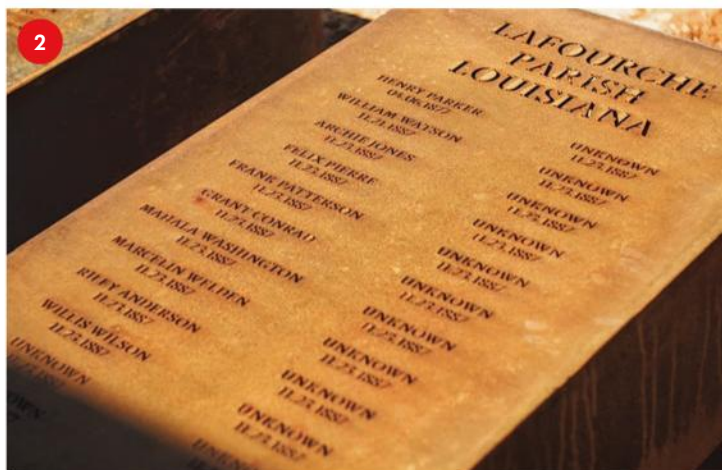 2
LAFOURCHE
PARISH
LOUISIANA
HENRY PARKER
04.06.1877
WILLIAM WATSON
11.21.1887
ARCHIE JONES
11.23.1887
FELIX PIERRE
11.23.1887
FRANK PATTERSON
11.23.1887
GRANT CONRAD
11.23.1887
MAHALA WASHINGTON
11.23.1887
MARCELIN WELDEN
11.23.1887
RILEY ANDERSON
11.23.1887
WILLIS WILSON
11.23.1887
UNKNOWN
UNKNOWN
11.23.1887
UNKNOWN
11.23.1887
UNKNOWN
11.23.1887
UNKNOWN
11.23.1887
UNKNOWN
11.23.1887
UNKNOWN
11.23.1887
UNKNOWN
11.23.1887
UNKNOWN
11.23.1887
UNKNOWN
11.23.1887
UNKNOWN
11.23.1887
UNKNOWN